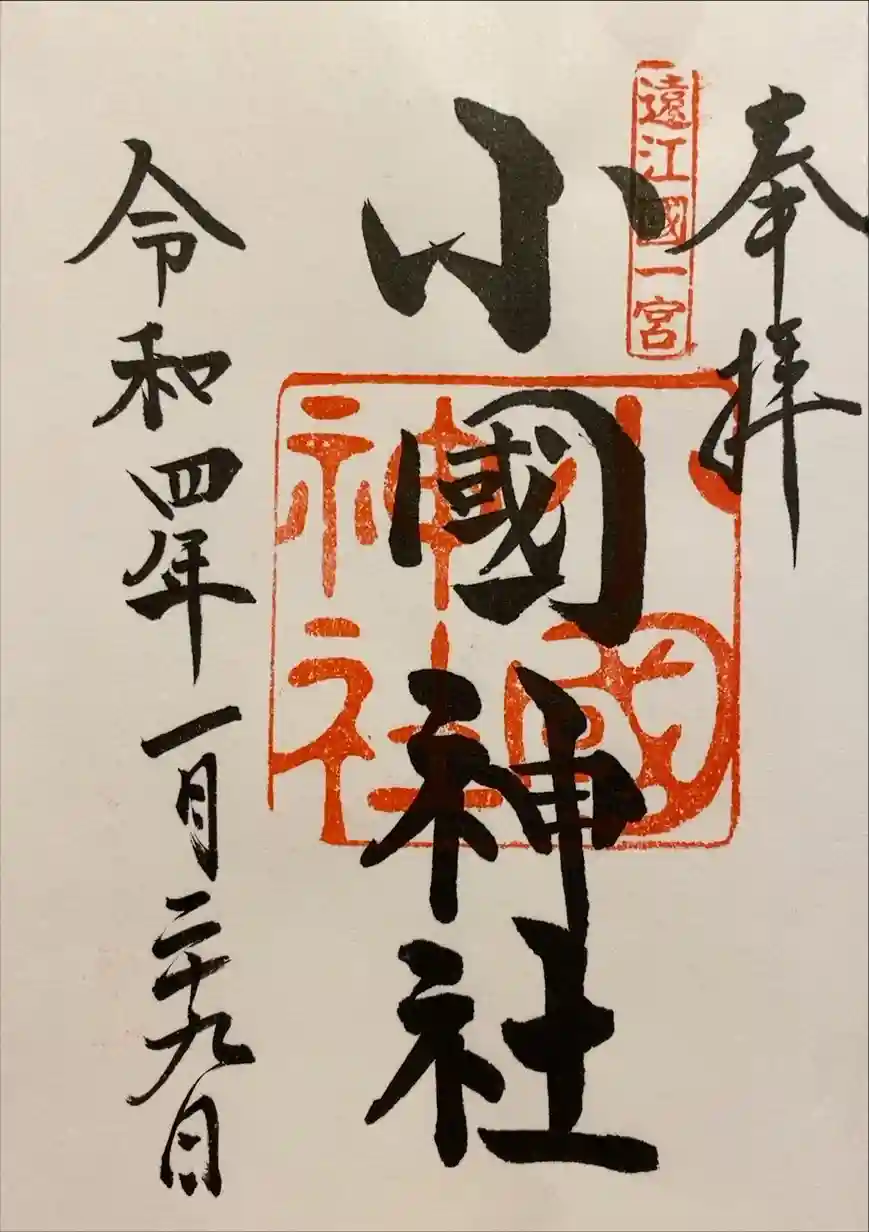 奉拝
遠江國一宮
小國神社
小國
神社
令和四年一月二十九日